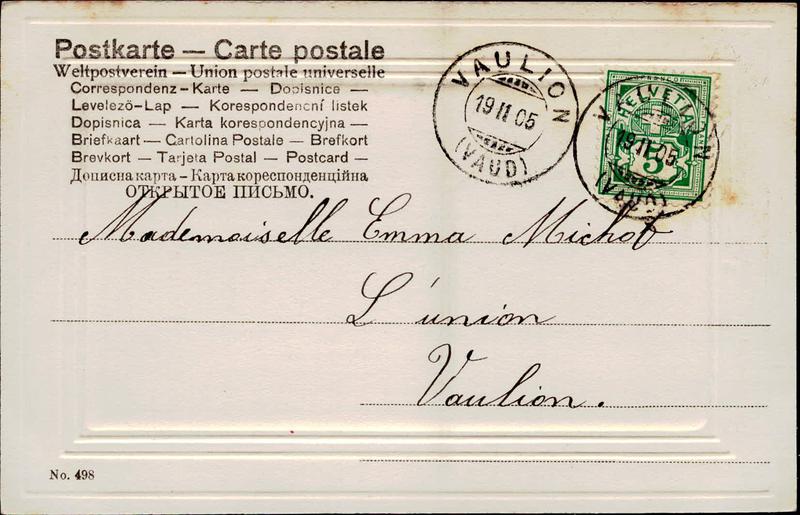 Postkarte — Carte postale
Weltpostverein — Union postale universelle
Correspondenz-Karte — Dopisnice —
Levelezö-Lap — Korespondencní listek
Dopisnica — Karta korespondencyjna —
Briefkaart — Cartolina Postale — Brefkort
Brevkort — Tarjeta Postal — Postcard —
Дописна карта - Карта кореспонденційна
ОТКРЫТОЕ ПИСЬМО.
VAULION
19 II 05
(VAUD)
HELVETIA
VAULION
19 II 05
5
(VAUD)
Mademoiselle Emma Michot
L'union
Vaulion.
No. 498